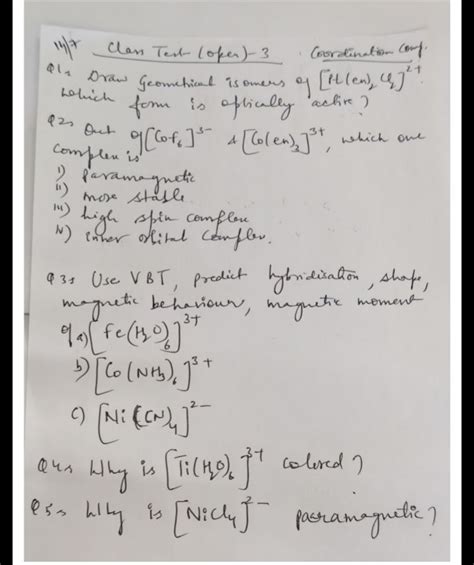 14/7 Class Test (open) - 3 Coordination Comp.
Q1. Draw Geometrical isomers of [Pt(en)₂Cl₂]²⁺
which form is optically active?
Q2. Out of [CoF₆]³⁻ & [Co(en)₃]³⁺, which one
complex is
i) Paramagnetic
ii) more stable
iii) high spin complex
iv) inner orbital complex.
Q3. Use VBT, predict hybridisation, shape,
magnetic behaviour, magnetic moment
of a) [Fe(H₂O)₆]³⁺
b) [Co(NH₃)₆]³⁺
c) [Ni(CN)₄]²⁻
Q4. Why is [Ti(H₂O)₆]³⁺ colored?
Q5. Why is [NiCl₄]²⁻ paramagnetic?